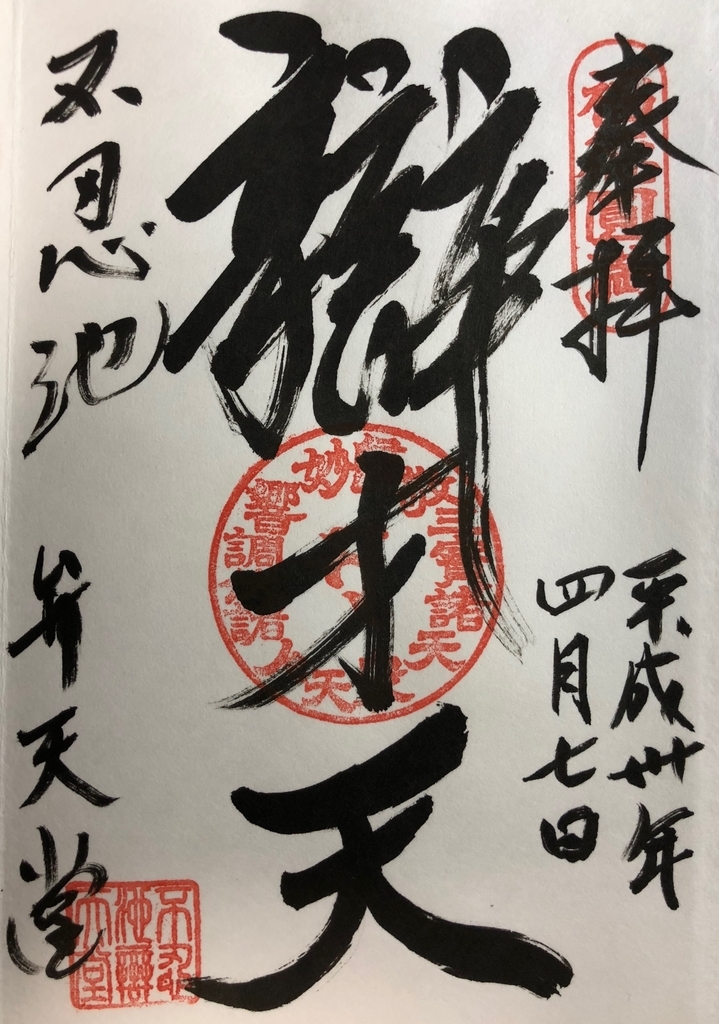 奉拝
平成卅年
四月七日
辯才天
不忍池
弁天堂
不忍
池辯
天堂